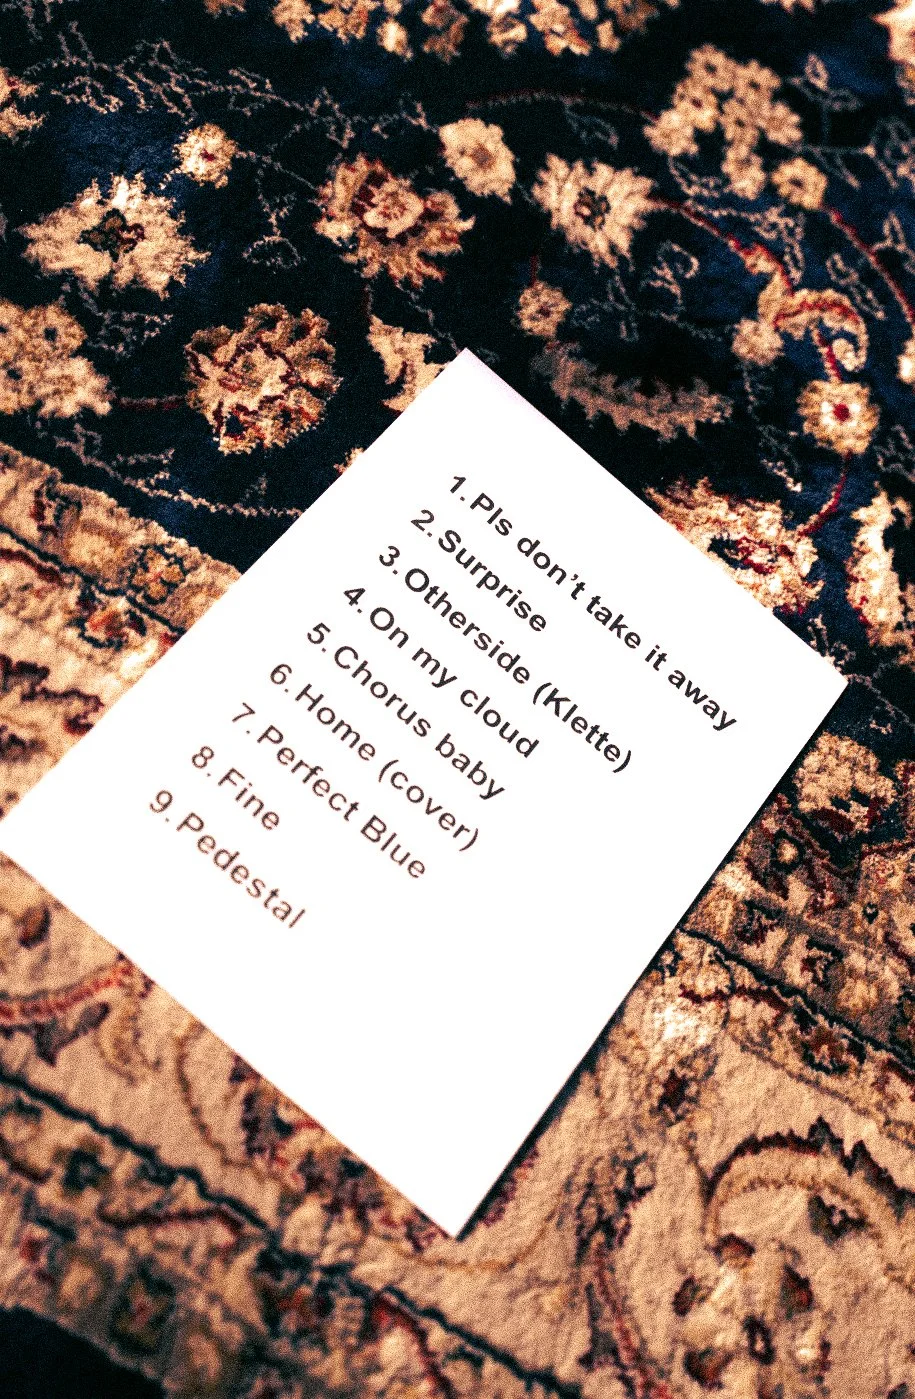 1. Pls don’t take it away
2. Surprise
3. Otherside (Klette)
4. On my cloud
5. Chorus baby
6. Home (cover)
7. Perfect Blue
8. Fine
9. Pedestal